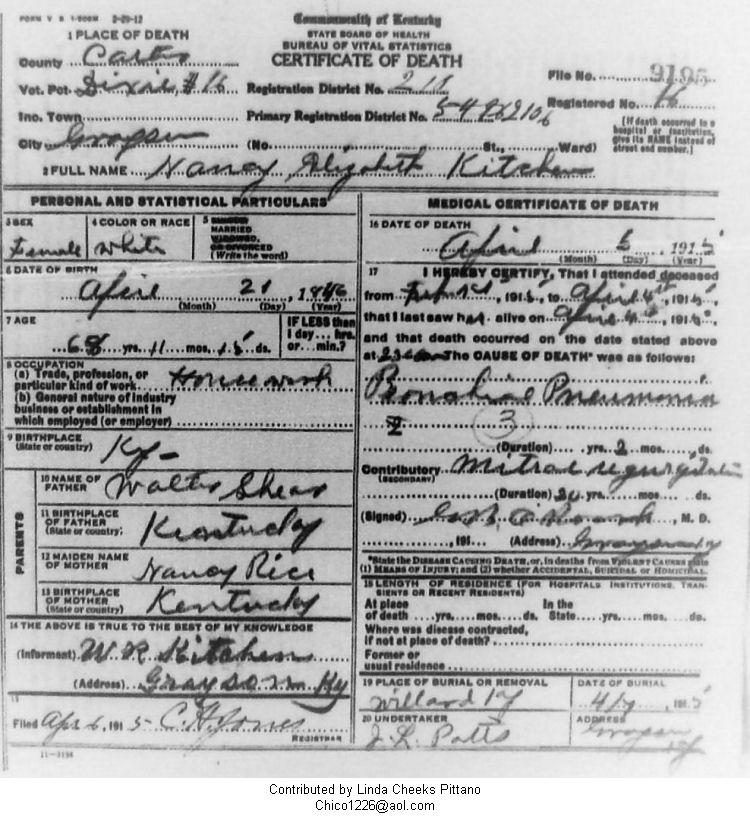 FORM V. S. 1-50BM 2-29-12
Commonwealth of Kentucky
STATE BOARD OF HEALTH
BUREAU OF VITAL STATISTICS
CERTIFICATE OF DEATH
1 PLACE OF DEATH
County Carter
Vot. Pct. Dixie, #16 Registration District No. 211
File No. 9195
Inc. Town Primary Registration District No.
Registered No. 16
City Grayson (No. St., Ward)
[If death occurred in a hospital or institution, give its NAME instead of street and number.]
2 FULL NAME Nancy Elizabeth Kitchen
PERSONAL AND STATISTICAL PARTICULARS
3 SEX Female
4 COLOR OR RACE White
5 SINGLE MARRIED WIDOWED, OR DIVORCED (Write the word)
6 DATE OF BIRTH
April 21, 1846
(Month) (Day) (Year)
7 AGE
68 yrs. 11 mos. 15 ds.
IF LESS than 1 day... hrs. or... min.?
8 OCCUPATION
(a) Trade, profession, or particular kind of work Housework
(b) General nature of industry
business or establishment in
which employed (or employer)
9 BIRTHPLACE (State or country) Ky-
PARENTS
10 NAME OF FATHER Walter Shear
11 BIRTHPLACE OF FATHER (State or country) Kentucky
12 MAIDEN NAME OF MOTHER Nancy Rice
13 BIRTHPLACE OF MOTHER (State or country) Kentucky
14 THE ABOVE IS TRUE TO THE BEST OF MY KNOWLEDGE
(Informant) W. R. Kitchen
(Address) Grayson Ky
15
Filed Apr 6, 1915 C. A. Jones
REGISTRAR
11-3194
MEDICAL CERTIFICATE OF DEATH
16 DATE OF DEATH
April 5, 1915
(Month) (Day) (Year)
17 I HEREBY CERTIFY, That I attended deceased
from 1915, to April 4th, 1915,
that I last saw her alive on April 4th, 1915,
and that death occurred on the date stated above
at The CAUSE OF DEATH* was as follows:
Bronchial Pneumonia
3
(Duration) yrs. 2 mos. ds.
Contributory (SECONDARY) Mitral regurgitation
(Duration) yrs. mos. ds.
(Signed) M. D.
, 191 (Address) Grayson Ky
*State the DISEASE CAUSING DEATH, or, in deaths from VIOLENT CAUSES state
(1) MEANS OF INJURY; and (2) whether ACCIDENTAL, SUICIDAL or HOMICIDAL.
18 LENGTH OF RESIDENCE (FOR HOSPITALS, INSTITUTIONS, TRANSIENTS OR RECENT RESIDENTS)
At place of death yrs. mos. ds. In the State yrs. mos. ds.
Where was disease contracted,
if not at place of death?
Former or
usual residence
19 PLACE OF BURIAL OR REMOVAL
Willard Ky
DATE OF BURIAL
4/7, 1915
20 UNDERTAKER
J. L. Potts
ADDRESS
Grayson Ky
Contributed by Linda Cheeks Pittano
Chico1226@aol.com